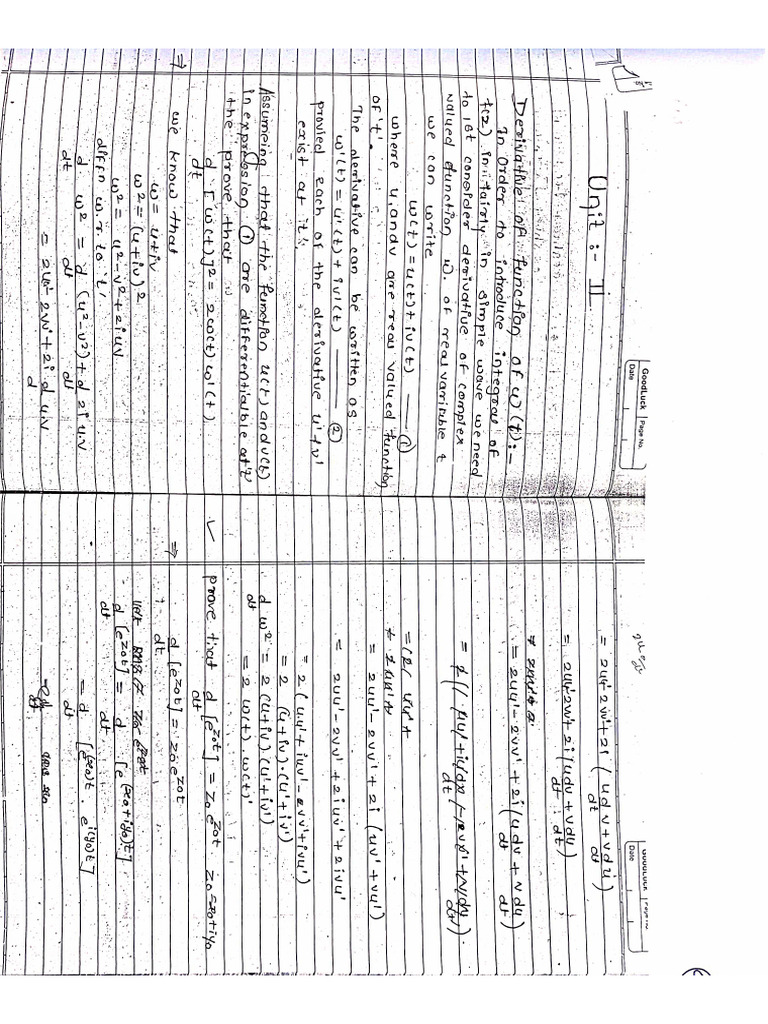 GoodLuck Page No.
Date
Unit :- II
Derivative of function of w(t):-
In order to introduce integral of
f(z) in fairly in simple wave we need
to 1st consider derivative of complex
valued function w. of real variable t
we can write
w(t) = u(t) + iv(t) — ①
where u, and v are real valued function
of 't'.
The derivative can be written as
w'(t) = u'(t) + iv'(t) — ②
provied each of the derivative u' & v'
exist at 't'.
Assumeing that the function u(t) and v(t)
in expression ① are differentiable at 't'
the prove that
d/dt [w(t)]² = 2w(t) w'(t)
⇒ we know that
w = u + iv
w² = (u + iv)²
w² = u² - v² + 2iuv
diffn w.r. to 't'
d/dt w² = d/dt (u² - v²) + d/dt 2i u.v
= 2uu' 2vv' + 2i d/d u.v
GoodLuck
Date
= 2uu' 2vv' + 2i (u dv/dt + v du/dt)
= 2uu' 2vv' + 2i (u dv/dt + v du/dt)
= 2uu' - 2vv' + 2i (u dv/dt + v du/dt)
= 2uu' - 2vv' + 2i (uv' + vu')
= 2uu' - 2vv' + 2iuv' + 2ivu'
= 2 (uu' + iuv' - vv' + ivu')
= 2 (u + iv) . (u' + iv')
d/dt w² = 2 (u + iv) (u' + iv')
= 2 w(t) . w(t)'
✓ prove that d/dt [e^z₀t] = z₀ e^z₀t z₀ = x₀ + iy₀
⇒ d/dt [e^z₀t] = z₀ e^z₀t
d/dt [e^z₀t] = d/dt [e^(x₀+iy₀)t]
= d/dt [e^(x₀)t . e^i(y₀)t]